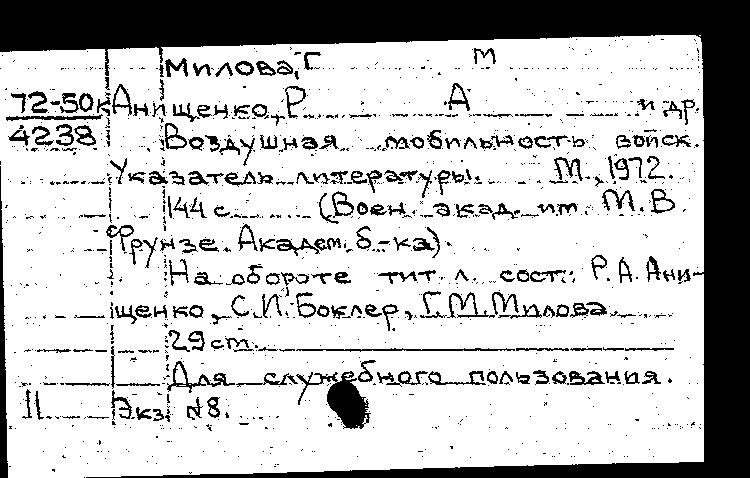 Милова, Г М
72-50к Анищенко, Р А и др.
4238 Воздушная мобильность войск.
Указатель литературы. М., 1972.
144 с (Воен. акад. им. М.В.
Фрунзе. Академ. б-ка).
На обороте тит. л. сост.: Р.А. Ани-
щенко, С.И. Боклер, Г.М. Милова.
29 cm.
Для служебного пользования.
11 Экз. №8.